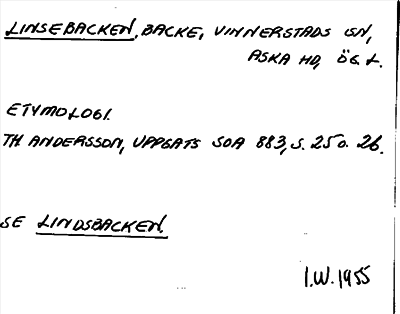 LINSEBACKEN, BACKE, VINNERSTADS SN,
ASKA HD, ÖG. L.
ETYMOLOGI.
TH. ANDERSSON, UPPSATS SOA 883, S. 25 O. 26.
SE LINDSBACKEN.
I.W. 1955